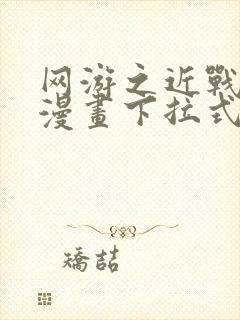 网游之近戰
漫畫下拉式
矯喆